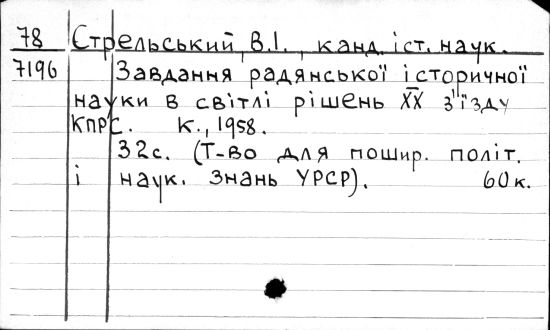 78 Стрельський, В.І., канд. іст. наук.
7196 Завдання радянської історичної
науки в світлі рішень XX з'їзду
КПРС. К., 1958.
32с. (Т-во для пошир. політ.
і наук. знань УРСР). 60к.